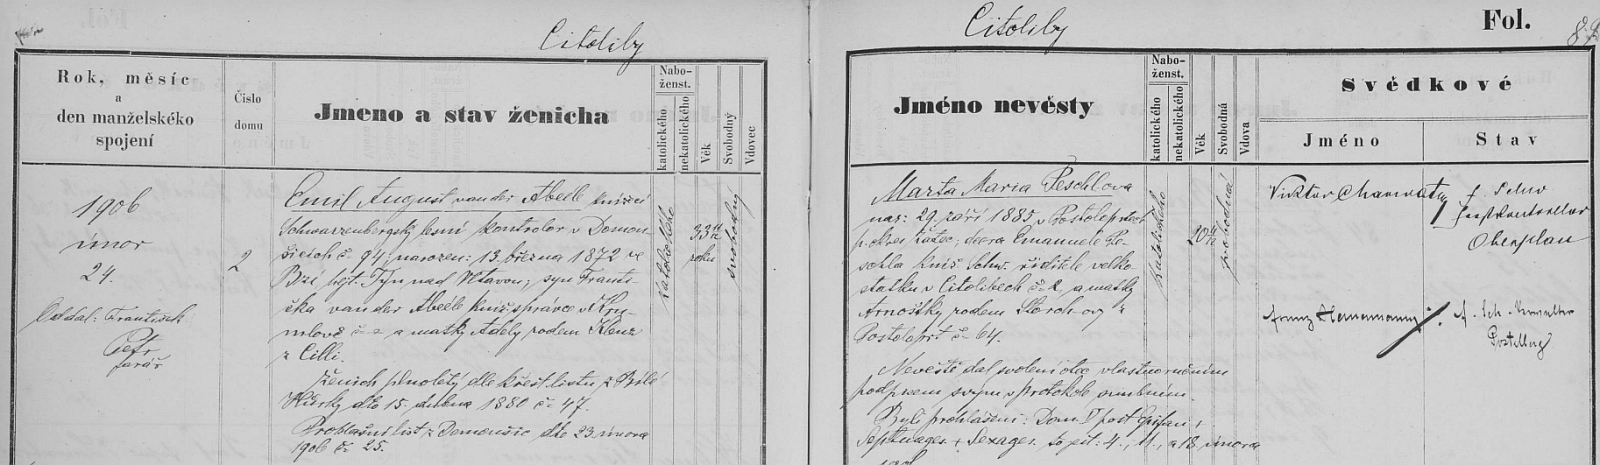 Citoliby
Rok, měsíc
a
den manželského
spojení
Číslo
domu
Jmeno a stav ženicha
Nabo-
ženst.
katolického
nekatolického
Věk
Svobodný
Vdovec
1906
únor
24.
Oddal: František
Petr
farář
2
Emil August van der Abeele knížecí
Schwarzenbergský lesní kontrolor v Domou-
šicích č. 94, narozen: 13. března 1872 ve
hejt. Týn nad Vltavou; syn Franti-
ška van der Abeele kníž. správce v Kru-
mlově č. a matky Adély rodem
z Cilli.
Ženich plnoletý dle křest. listu z Bílé
Hůrky dto 15. dubna 1880 č. 47.
Prohlašní list z Domoušic dto 23. února
1906 č. 25.
katolického
33 11/12
roků
svobodný
Citoliby
Fol.
Jméno nevěsty
Nabo-
ženst.
katolického
nekatolického
Věk
Svobodná
Vdova
Svědkové
Jméno
Stav
Marta Maria Peschlova
nar: 29. září 1885 v Postoloprtech
p. okres Žatec, dcera Emanuele Pe-
schla kníž. Schw. ředitele velko-
statku v Citolibech č. 2, a matky
Arnoštky rodem Storchovy z
Postoloprt č. 64.
Nevěstě dal svolení otec vlastnoručním
podpisem svým v protokole snubním.
Byli prohlášeni: Dom. V post Epifan,
Septuages. + Sexages. to jest: 4., 11., a 18. února
katolického
20 4/12
svobodná
Viktor
f. Schw
Forstkontrollor
Oberplan
Franz Hememann
f. Sch. Verwalter
Postelberg